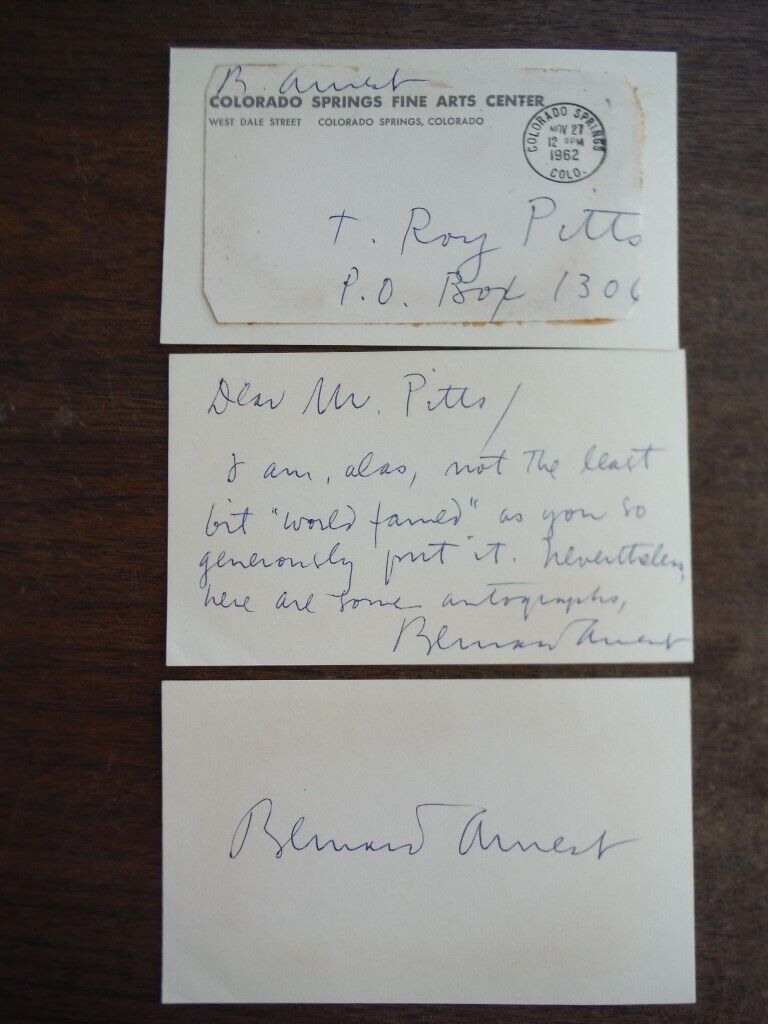 B. Arnest
COLORADO SPRINGS FINE ARTS CENTER
WEST DALE STREET COLORADO SPRINGS, COLORADO
COLORADO SPRINGS
NOV 27
12 PM
1962
COLO.
T. Roy Pitts
P.O. Box 1306
Dear Mr. Pitts/
I am, alas, not the least
bit "world famed" as you so
generously put it. Nevertheless,
here are some autographs,
Bernard Arnest
Bernard Arnest